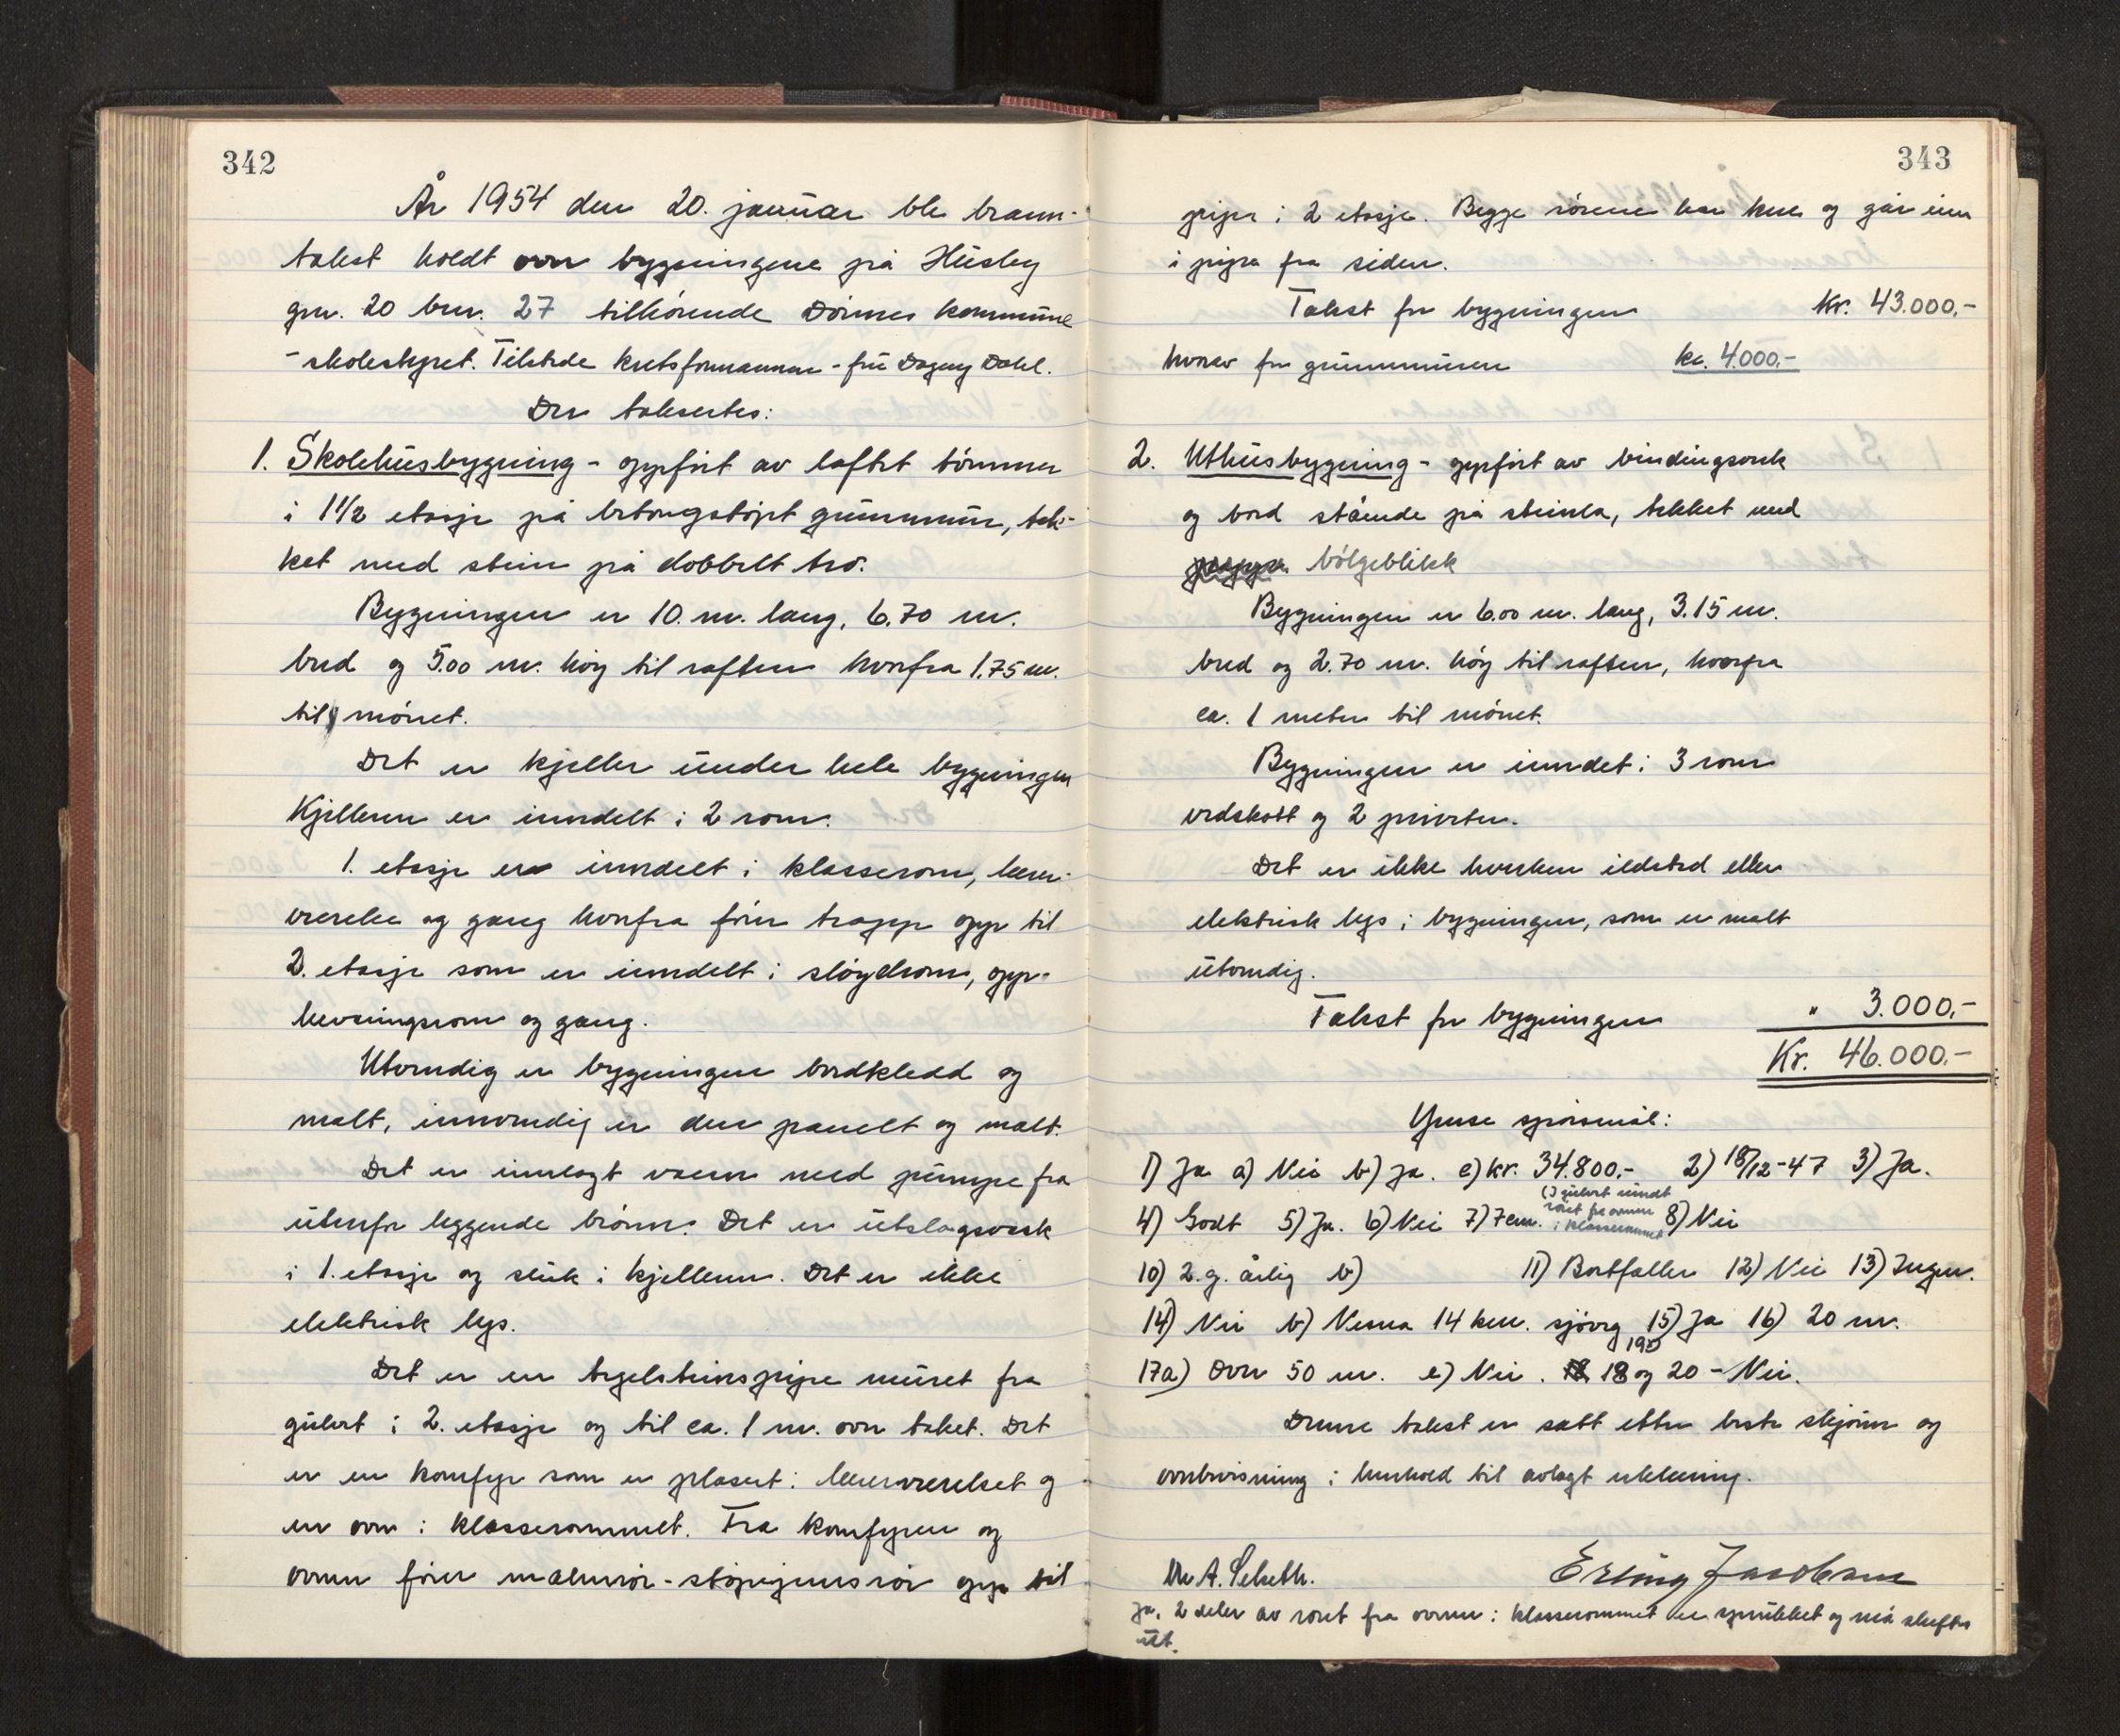 342
År 1954 den 20. januar ble brann-
takst holdt over bygningene på Husby
gnr. 20 bnr. 27 tilhørende Dønnes kommune
- skolestyret. Tilstede kretsformannen - fru Dagny Dahl.
Der taksertes:
1. Skolehusbygning - oppført av laftet tømmer
i 1 1/2 etasje på betongstøpt grunnmur, tek-
ket med stein på dobbelt tro.
Bygningen er 10. m. lang, 6.70 m.
bred og 5.00 m. høy til raften hvorfra 1.75 m.
til mønet.
Det er kjeller under hele bygningen
Kjelleren er inndelt i 2 rom.
1. etasje er inndelt i klasserom, lærer-
værelse og gang hvorfra fører trapp opp til
2. etasje som er inndelt i sløydrom, opp-
bevaringsrom og gang.
Utvendig er bygningen bordkledd og
malt, innvendig er den panelt og malt.
Det er innlagt vann med pumpe fra
utenfor liggende brønn. Det er utslagsvask
i 1. etasje og sluk i kjelleren. Det er ikke
elektrisk lys.
Det er en teglsteinspipe muret fra
gulvet i 2. etasje og til ca. 1 m. over taket. Det
er en komfyr som er plasert i lærerværelset og
en ovn i klasserommet. Fra komfyren og
ovnen fører malmrør - støpejernsrør opp til
343
pipen i 2 etasje. Begge rørene har kne og går inn
i pipa fra siden.
Takst for bygningen kr. 43.000,-
hvorav for grunnmuren kr. 4.000,-
2. Uthusbygning - oppført av bindingsverk
og bord stående på steinla, tekket med
bølgeblikk
Bygningen er 6.00 m. lang, 3.15 m.
bred og 2.70 m. høy til raften, hvorfra
ca. 1 meter til mønet.
Bygningen er inndet i 3 rom
vedskott og 2 priveter.
Det er ikke hverken ildsted eller
elektrisk lys i bygningen, som er malt
utvendig.
Takst for bygningen " 3.000,-
Kr. 46.000.-
Ymse spørsmål:
1) Ja a) Nei b) ja. c) kr. 34.800,- 2) 18/12-47 3) Ja.
4) Godt 5) Ja. 6) Nei 7) 7 cm. (i gulvet rundt røret fra ovnen i klasserommet 8) Nei
10) 2. g. årlig b) 11) Bortfaller 12) Nei 13) Ingen.
14) Nei b) Nesna 14 km. sjøveg 15) Ja 16) 20 m.
17a) Over 50 m. c) Nei. 18 19 og 20 - Nei.
Denne takst er satt etter beste skjønn og
overbevisning i henhold til avlagt erklæring.
A. Selseth. Erling Jacobsen
Ja, 2 deler av røret fra ovnen i klasserommet er sprukket og må skiftes
ut.